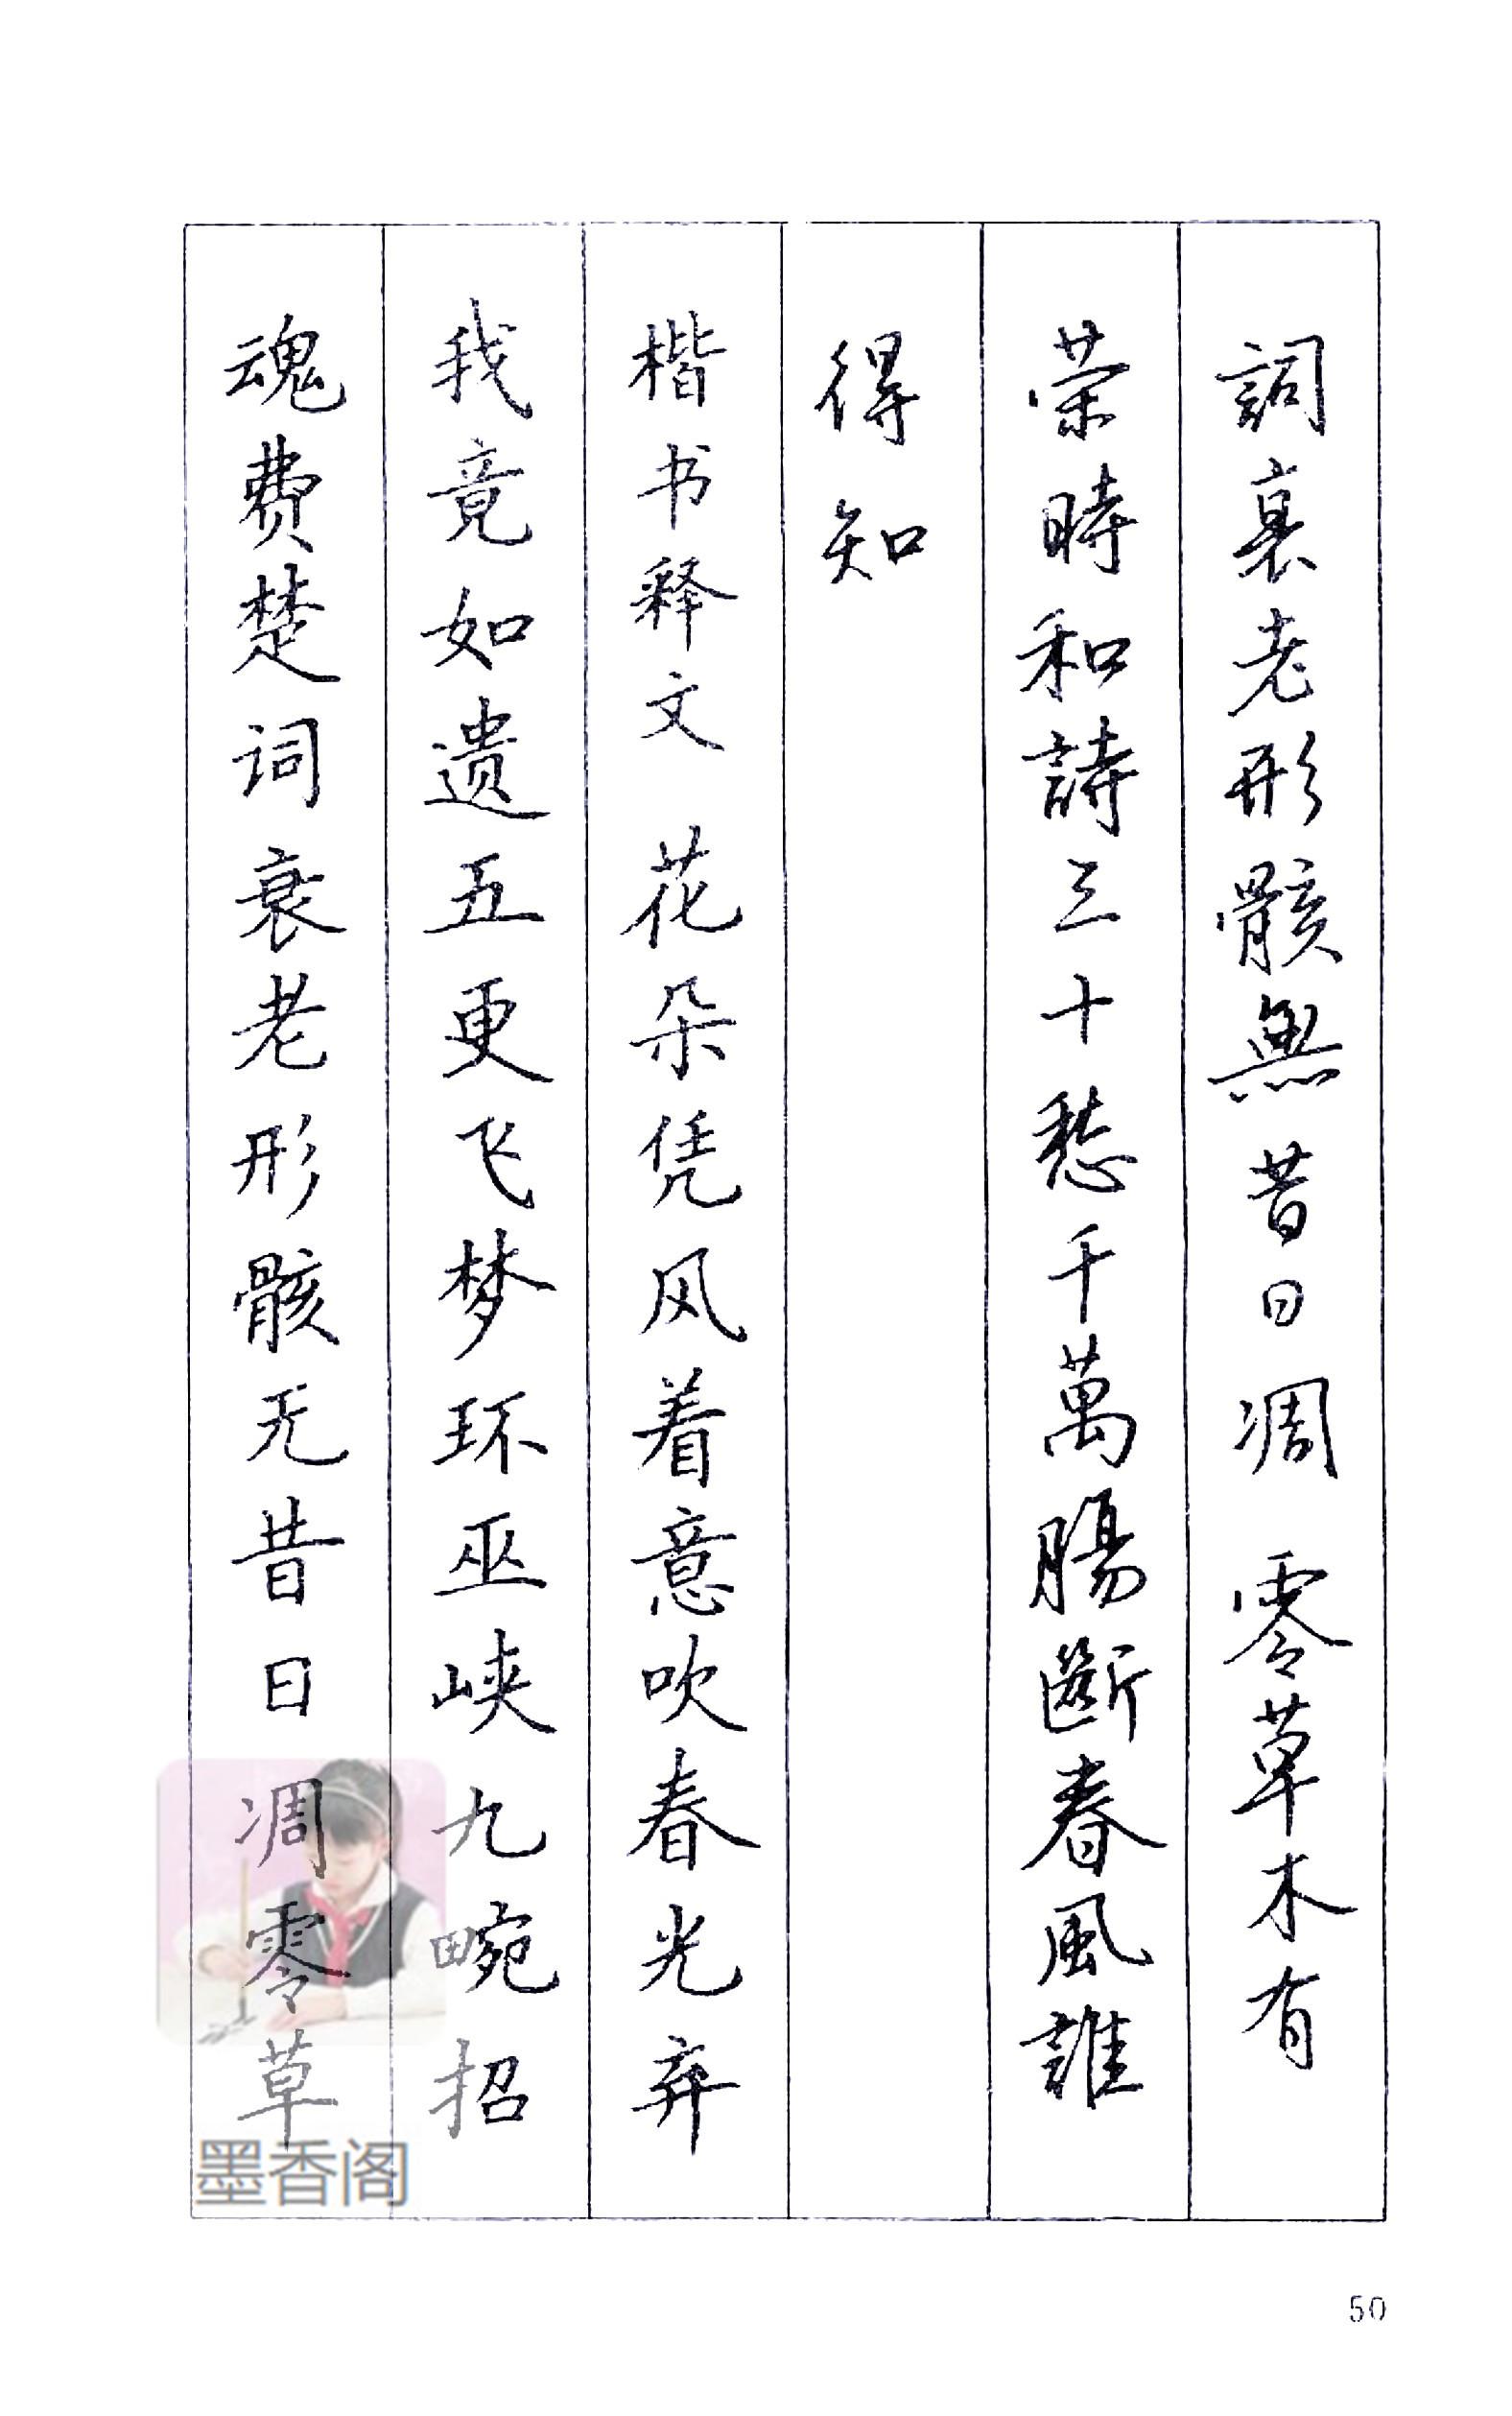 詞衰老形骸無昔日凋零草木有
荣時和詩三十愁千萬腸斷春風誰
得知
楷书释文 花朵凭风着意吹春光弃
我竟如遗五更飞梦环巫峡九畹招
魂费楚词衰老形骸无昔日凋零草
墨香阁
50